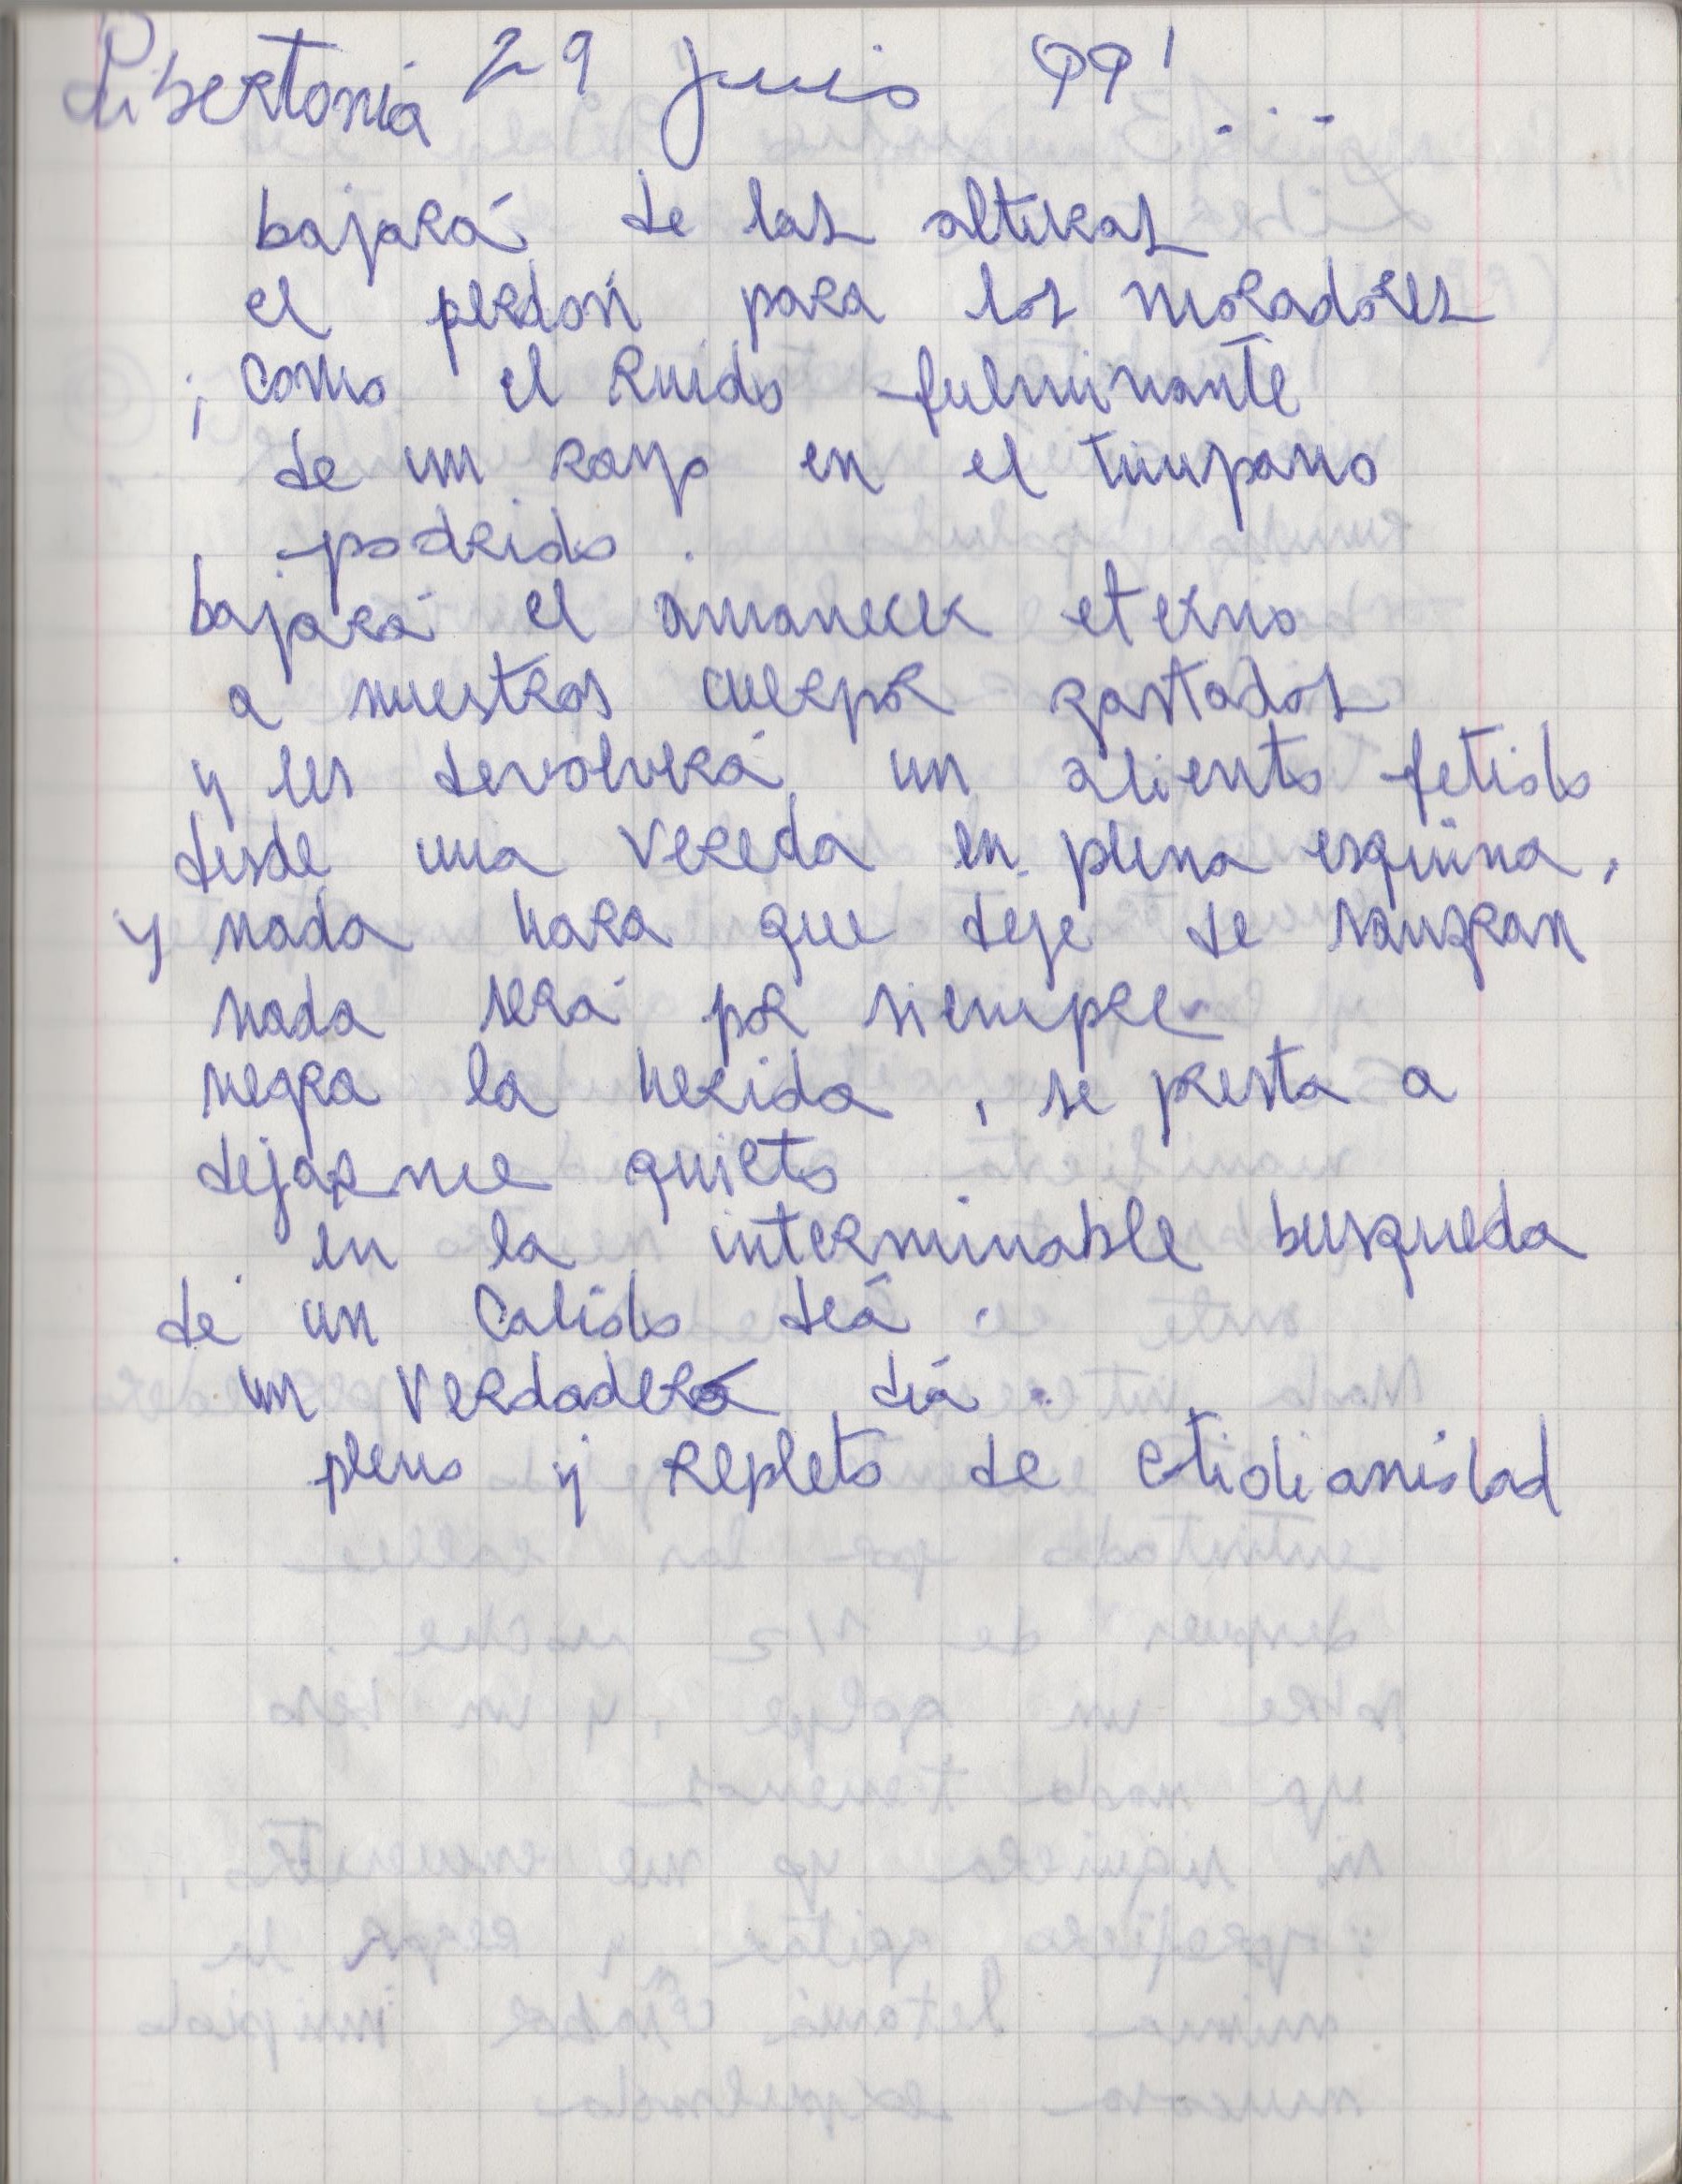 Libertonia 29 junio 99' ...
bajará de las alturas
el perdón para los moradores
; como el Ruido fulminante
de un rayo en el timpano
podrido.
bajará el amanecer eterno
a nuestros cuerpor gastados
y les devolverá un aliento fetido
desde una vereda en plena esquina,
y nada hara que deje de sangrar
nada será por siempre
negra la herida, se presta a
dejarme quieto
en la interminable busqueda
de un calido diá.
un verdadero diá.
pleno y Repleto de cotidianidad